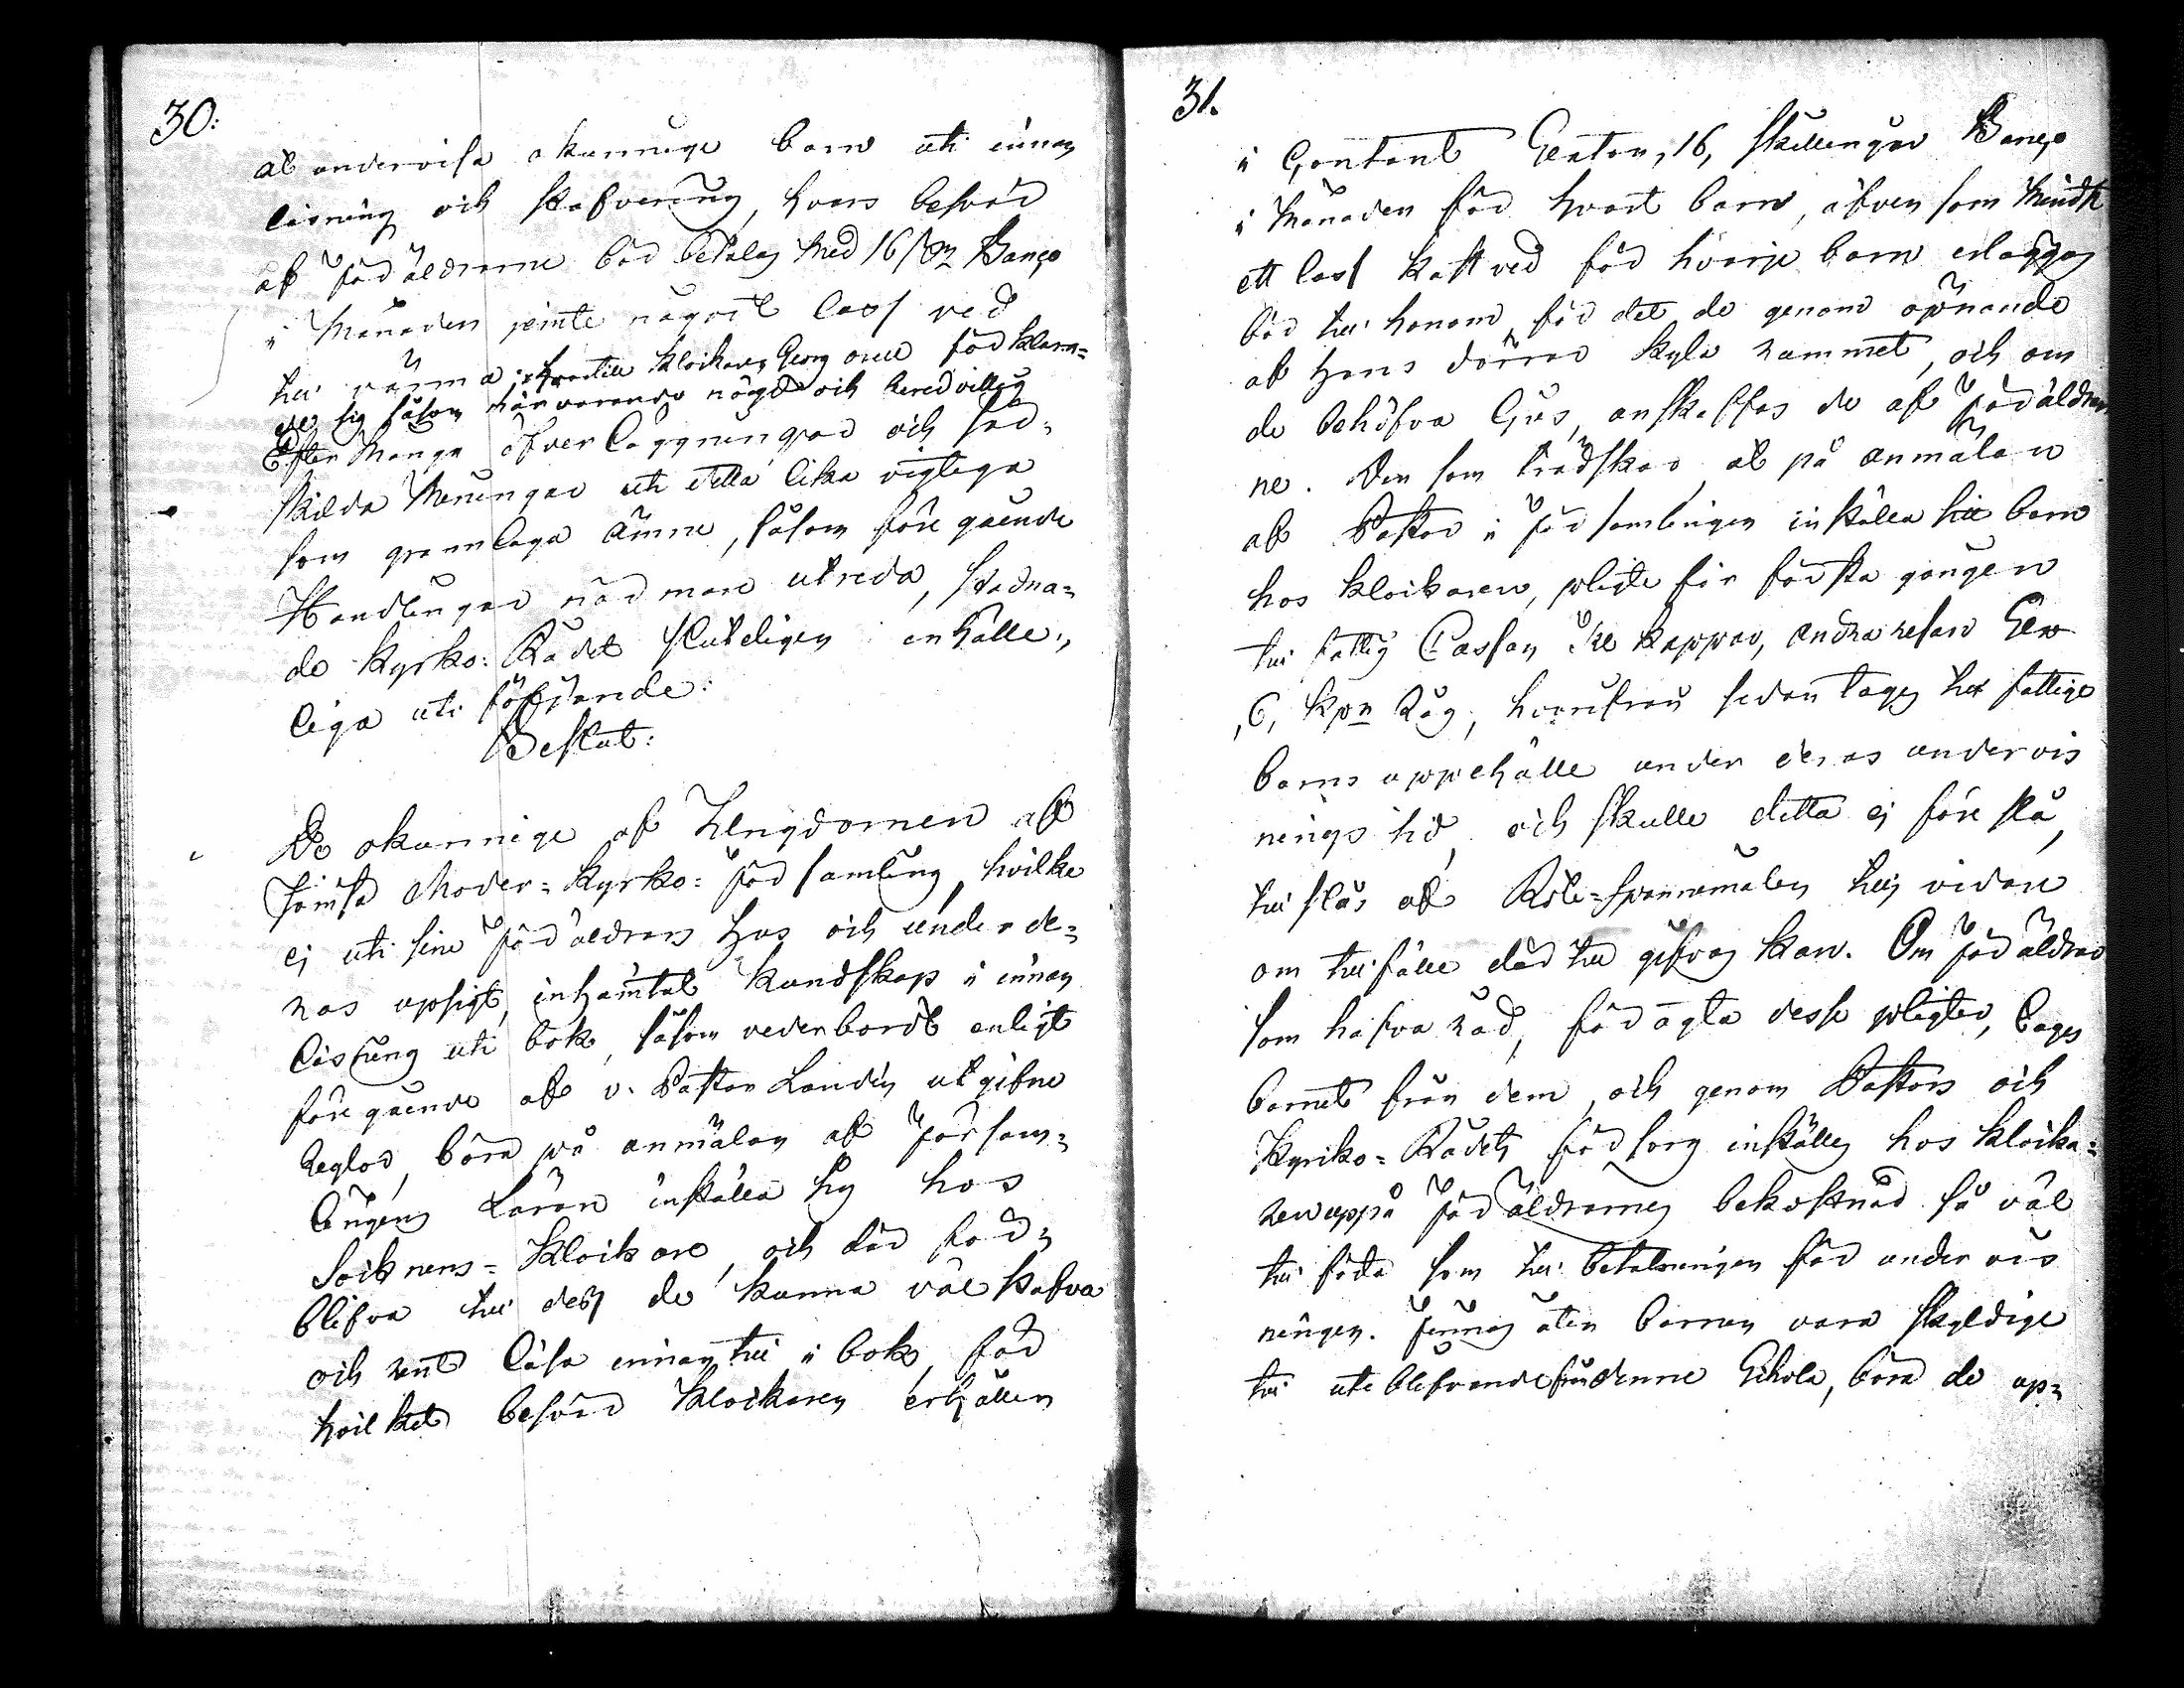 30:
at undervisa okunnige barn uti innan
läsning och stafvering, hvars besvär
af Föräldrarne bör betalas med 16 s:r Banço
i Månaden jemte något lass ved
til värma; hvartill Klockaren Georg ... förklara=
de sig såsom närvarande nögde och beredvillig
Efter många öfverläggningar och sär=
skilda Meningar uti detta lika vigtiga
som grannlaga ämne, såsom före gående
Handlingar närmare utreda, stadna=
de Kyrko-Rådet sluteligen enhälle=
liga uti följande:
Beslut:
De okunnige af Ungdomen af
Jemsä Moder=Kyrko=Församling, hvilke
ej uti sine Föräldrars hus och under de=
ras upsigt, inhämtat kundskap i innan
läsning uti bok, såsom vederbordt enligt
före gående af v. Pastor Landén utgifne
Reglor, böra på anmälan af Försam=
lingens Lärare inställa sig hos
Socknens=Klockare, och där för=
blifva til dess de kunna väl stafva
och rent läsa innantil i bok, för
hvilket besvär Klockaren erhåller
31.
i Contant Penton, 16, Skillingar Banço
i Månaden för hvart barn, äfven som Minst
ett lass kastved för hvarje barn erläggas
bör til honom, för det de genom öpnande
af hans dörrar kyla rummet, och om
de behöfva ljus, anskaffas de af Föräldrar
ne. Den som tredskar at på anmälan
af Pastor i Församlingen inställa sitt barn
hos Klockaren, pligte för första gången
til fattig Cassan Tre Kappar, andra resan Sex
,6, kpr Råg, hvarifrån sedan tages til fattige
barns uppehälle under deras undervis
nings tid, och skulle detta ej förslå,
tilslås af Rote-Spannemålen til vidare
om tilfälle där til gifvas kan. Om Föräldrar
som hafva råd, förakta desse pligter, tages
barnet från dem, och genom Pastors och
Kyrko=Rådets försorg inställes hos Klocka=
ren uppå Föräldrarnes bekostnad så väl
til föda som til betalningen för undervis
ningen. Finnas åter barnen vara skyldige
til uteblifvande från denne Schola, böra de up=